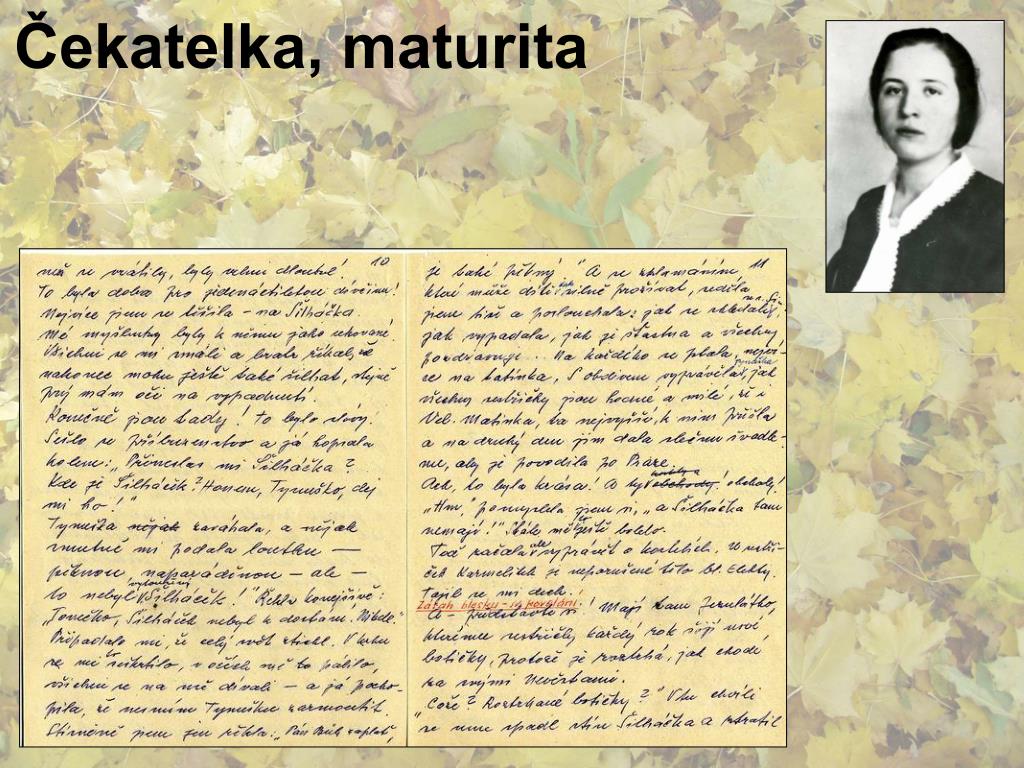 Čekatelka, maturita
10
než se vrátily, byly velmi dlouhé!
To byla doba pro jedenáctiletou dívčinu!
Nejvíce jsem se těšila – na Šilháčka.
Mé myšlenky byly k němu jako ukované.
Všichni se mi smáli a bratr říkal, že
nakonec mohu ještě také šilhat, stejně
prý mám oči na vypadnutí.
Konečně jsou tady! To bylo slávy.
Sešlo se příbuzenstvo a já hopsala
kolem: „Přineslas mi Šilháčka?
Kde je Šilháček? Honem, Tynuško, dej
mi ho!"
Tynuška nějak zaváhala, a nějak
smutně mi podala loutku —
pěknou, naparáděnou — ale —
to nebyl vytoužený Šilháček! Řekla konejšivě:
„Toničko, Šilháček nebyl k dostání.
Připadalo mi, že celý svět ztichl. V krku
se mi to seškrtilo, v očích mě to pálilo,
všichni se na mě dívali — a já pocho-
pila, že nesmím Tynušku zarmoutit.
Stísněně jsem jen řekla: „Pán Bůh zaplať,
11
je také pěkný." A se zklamáním,
které může dítě tak silně prožívat, seděla
jsem tiše a poslouchala: jak se shledaly,
jak vypadala, jak je šťastna a všechny
pozdravuje... Na každého se ptala, nejví-
ce na tatínka, S obdivem vyprávěla Tynuška, jak
všechny sestřičky jsou hodné a milé, že i
Vel. Matinka, ta nejvyšší, k nim přišla
a na druhý den jim dala slečnu švadle-
nu, aby je provodila po Praze.
Ach, to byla krása! A ty obchody! obchody!
„Hm", pomyslela jsem si, „a Šilháčka tam
nemají!" Stále mě to ještě bolelo.
Teď začala ale vyprávět o kostelích. U sestři-
ček Karmelitek je neporušené tělo bl. Elekty.
Tajil se mi dech.
Zásah blesku – povolání!
A – představte si! Mají tam Jezulátko,
kterému sestřičky každý rok šijí nové
botičky, protože je roztrhá, jak chodí
za svými
„Cože? Roztrhané botičky?" V tu chvíli
se mne spadl stín Šilháčka a ztratil